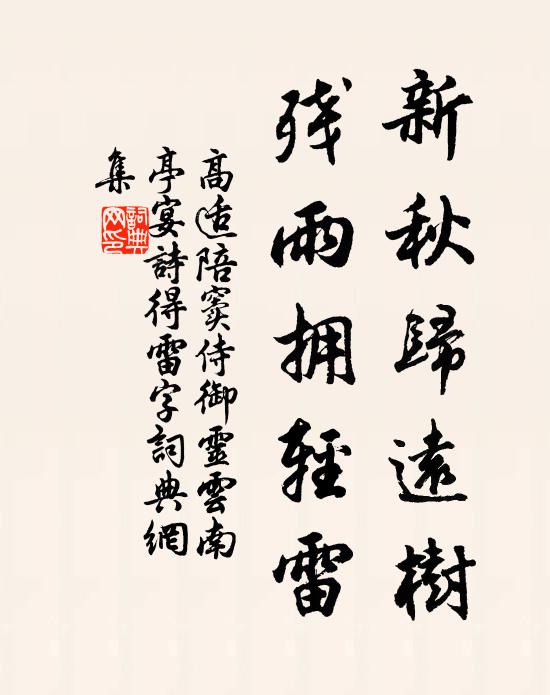 新秋歸遠樹
殘雨拥輕雷
高适陪窦侍御靈雲南
亭宴詩得雷字詞典網
集
詞典網印